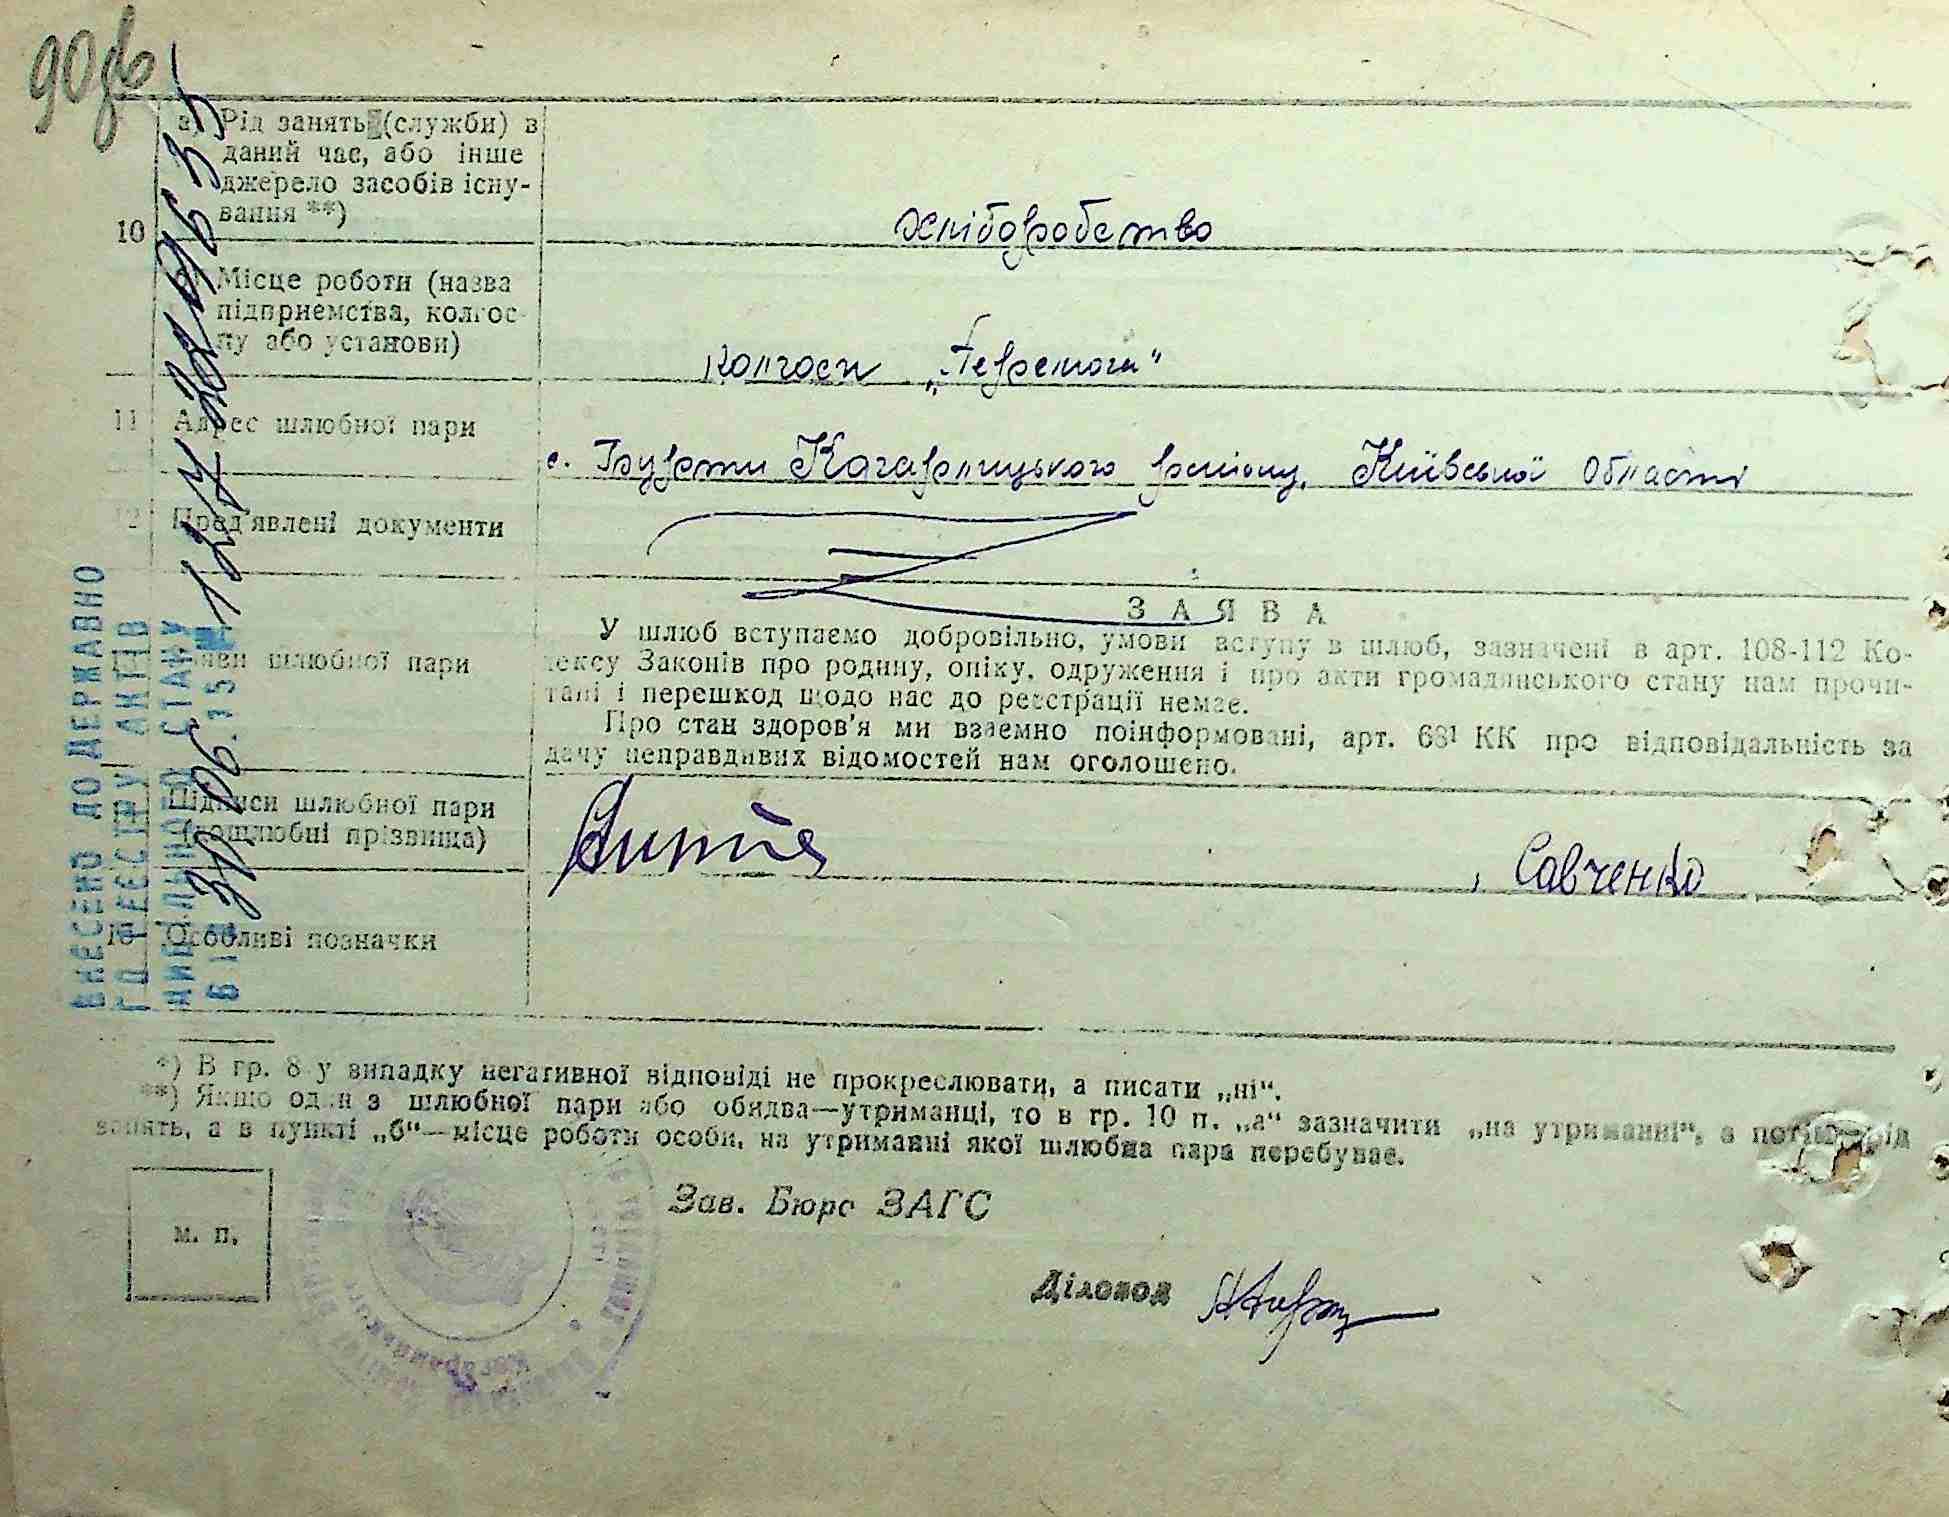 90
а) Рід занять (службы) в
даний час, або інше
джерело засобів існу-
вання **)
10
хліборобство
Місце роботи (назва
підприємства, колгос-
пу або установи)
колгосп „Перемога“
11 Адрес шлюбної пари
с. Бурти Кагарлицького району, Київської области
12 Пред'явлені документи
ЗАЯВА
У шлюб вступаємо добровільно, умови вступу в шлюб, зазначені в арт. 108-112 Ко-
дексу Законів про родину, опіку, одруження і про акти громадянського стану нам прочи-
тані і перешкод щодо нас до реєстрації немає.
Про стан здоров'я ми взаємно поінформовані, арт. 68¹ КК про відповідальність за
дачу неправдивих відомостей нам оголошено.
шлюбної пари
Підписи шлюбної пари
(дошлюбні прізвища)
, Савченко
Особливі позначки
ВНЕСЕНО ДО ДЕРЖАВНО
ГО РЕЄСТРУ АКТІВ
ЦИВІЛЬНОГО СТАНУ
*) В гр. 8 у випадку негативної відповіді не прокреслювати, а писати „ні“.
**) Якщо один з шлюбної пари або обидва—утриманці, то в гр. 10 п. „а“ зазначити „на утриманні“, а потім—рід
занять, а в пункті „б“—місце роботи особи, на утриманні якої шлюбна пара перебуває.
м. п.
Зав. Бюро ЗАГС
Діловод